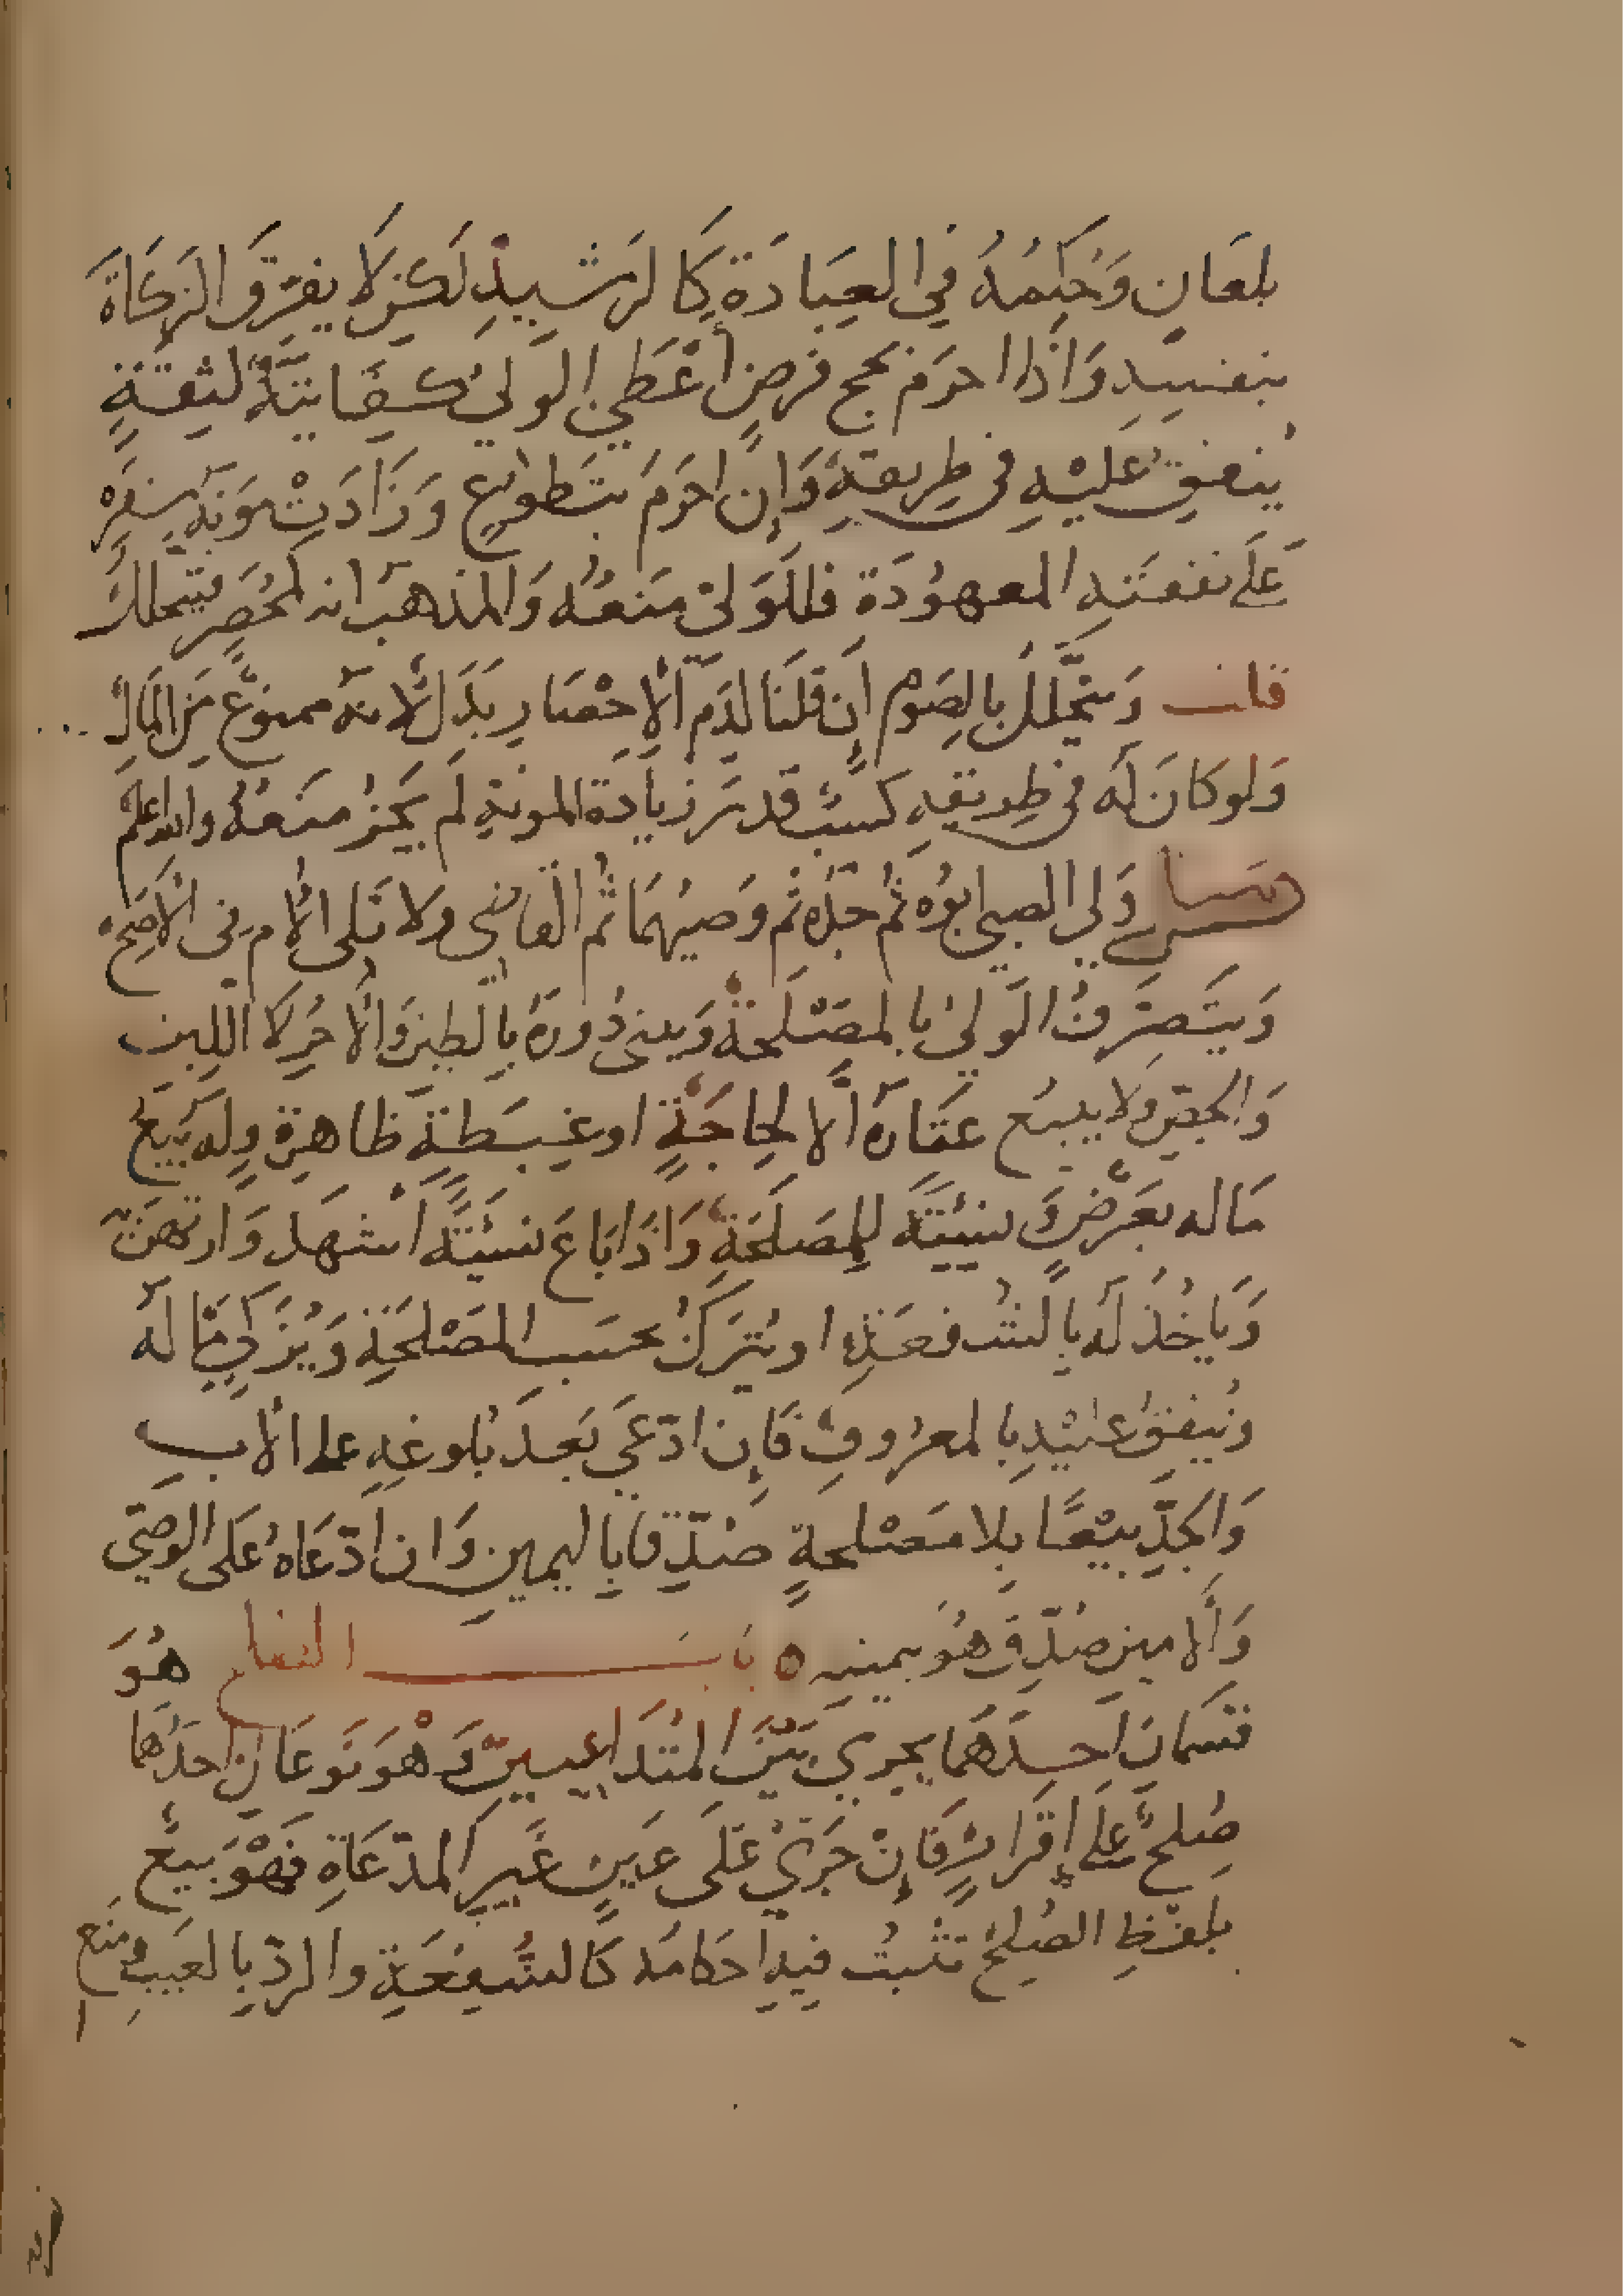 بلعان وَحُكمُهُ في العِبَادَة كَالرشيدِ لكن لا يفرِّق الزكاةَ
بنفسِهِ وَاذا احرَم بحج فرضٍ أعْطَى الوليُّ كفايتَهُ لثِقَةٍ
يُنفقُ عليْهِ في طريقهِ وَإن احرَمَ بتطوعٍ وَزَادَتْ مؤنة سفرِهْ
عَلَى نفقتهِ المعهوُدَة فللوَلىّ مَنعُه وَالمذهَبُ انه كمُحصَرٍ فيتحللُ
قلت وَيتحلّلُ بالصَوم إن قلنا لدَم الإحْصَار بدَلٌ لأنه ممنوعٌ مِنَ المَالِ
وَلو كانَ لهَ في طريقهِ كسبُ قدر زيادة المونةِ لم يَجُز منعُهُ والله اعلم
فصل وَلي الصبي ابوُه ثم جدُّه ثم وَصيهُمَا ثم القاضي ولا تلى الأم في الأصَحّ
وَيتصرّفُ الوليُّ بالمصْلحة وَيبنى دُورَهُ بالطينِ وَالآجُرِّ لا اللبِن
وَالجصِّ ولا يبيعُ عقارَهُ الَّا لحِاجَةٍ او غِبطةٍ ظاهرة وله بَيعُ
مَاله بعَرْضٍ وَنسيئة للمصلَحَةِ وَاذَا بَاعَ نسيئَةً اشهَد وَارتهَنَ
وَيَاخُذُ لَه بالشُفعَةِ او يُتركُ بحسَب المصْلحَةِ وَيُزكّي مَالَه
وَيُنفِقُ عليْهِ بالمعرُوفِ فإن ادّعَي بَعدَ بُلوغهِ على الأب
وَالجدِّ بيْعًا بلا مصْلحةٍ صُدّقا باليمينِ وَان ادّعَاهُ عَلَى الوصيّ
وَالأمين صُدّق هُوَ بيمينه ٥ بَابُ الصلح هُوَ
قسمان احدهَما يجري بَينَ المتُدَاعيينْ وَهوَ نَوعَان احدُهما
صُلحٌ عَلَى إقرارٍ فإنْ جَرَيْ عَلَى عَينٍ غَيرِ المدّعَاةِ فهْوَ بيعٌ
بلفظِ الصُلحْ تثبتُ فيهِ احكامه كَالشُفعَةِ والردِّ بالعَيبِ ومنع